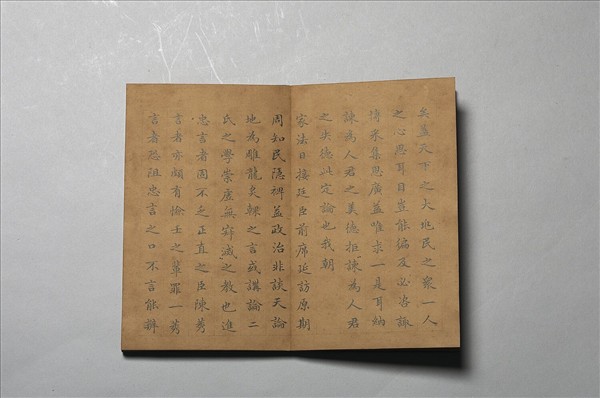 矣蓋天下之大兆民之衆一人
之心思耳目豈能徧及必咨諏
博采集思廣益唯求一是耳納
諫為人君之美德拒諫為人君
之失德此定論也我朝
家法日接廷臣前席延訪原期
周知民隱裨益政治非談天論
地為雕龍炙輠之言或講論二
氏之學崇虛無寂滅之教也進
忠言者固不乏正直之臣陳莠
言者亦頗有憸壬之輩罪一莠
言者恐阻忠言之口不言能辨